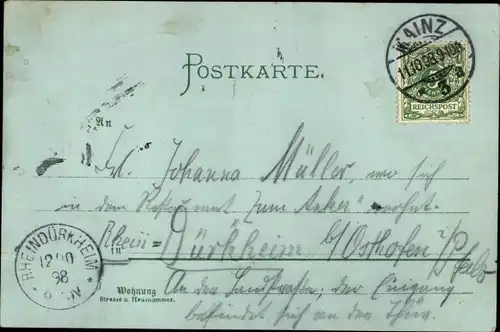 MAINZ
11.10.98.9-10N.
* 3 a
5
REICHSPOST
POSTKARTE.
An
Frl. Johanna Müller, wo sich
in dem Restaurant "Zum Anker" wohnt.
in
Rhein=Dürkheim b/ Osthofen
Pfalz
An der Landstrasse; der Eingang
befindet sich an der Thür.
RHEINDÜRKHEIM
12 10
98
Wohnung
Strasse u. Hausnummer.